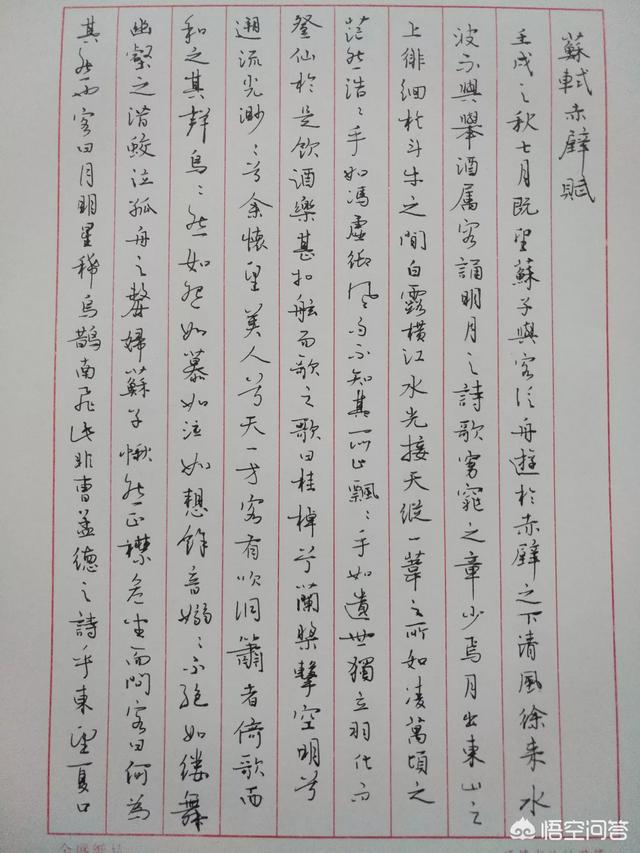 蘇軾赤壁賦
壬戌之秋七月既望蘇子與客泛舟遊於赤壁之下清風徐來水
波不興舉酒属客誦明月之詩歌窈窕之章少焉月出東山之
上徘徊於斗牛之間白露橫江水光接天縱一葦之所如凌萬頃之
茫然浩〻乎如馮虛御風而不知其所止飄〻乎如遺世獨立羽化而
登仙於是飲酒樂甚扣舷而歌之歌曰桂棹兮蘭槳擊空明兮
遡流光渺〻兮余懷望美人兮天一方客有吹洞簫者倚歌而
和之其聲烏〻然如怨如慕如泣如想餘音嫋〻不絕如縷舞
幽壑之潛蛟泣孤舟之嫠婦蘇子愀然正襟危坐而問客曰何為
其然而客曰月明星稀烏鵲南飛此非曹孟德之詩乎東望夏口
悟空问答